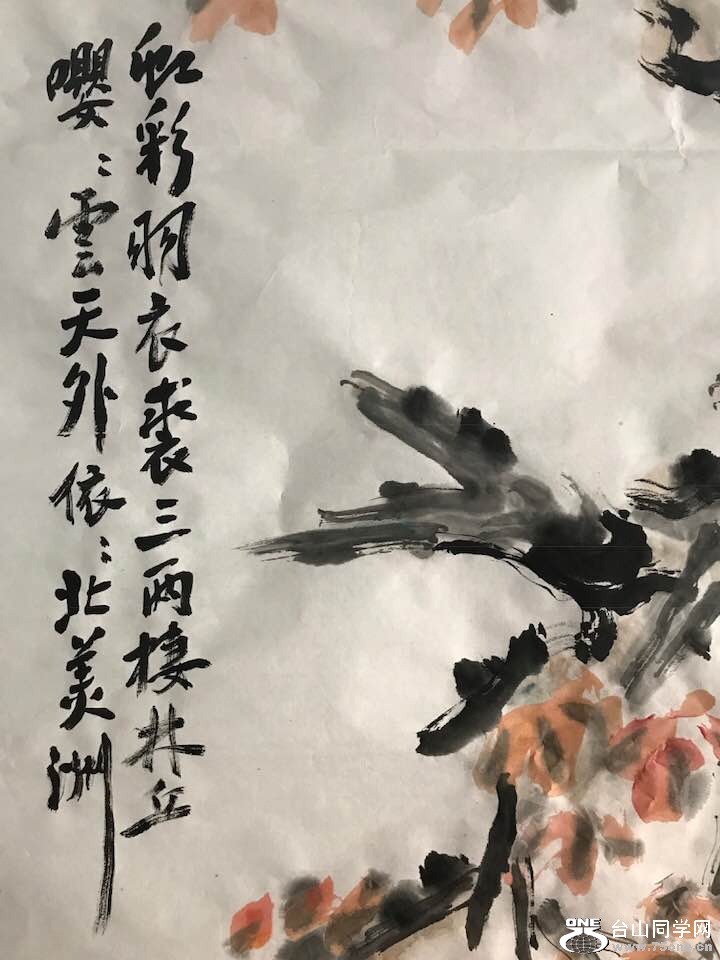 虹彩羽衣裘三两棲林丘
嚶:雲天外依:北美洲
ONE
台山同学网